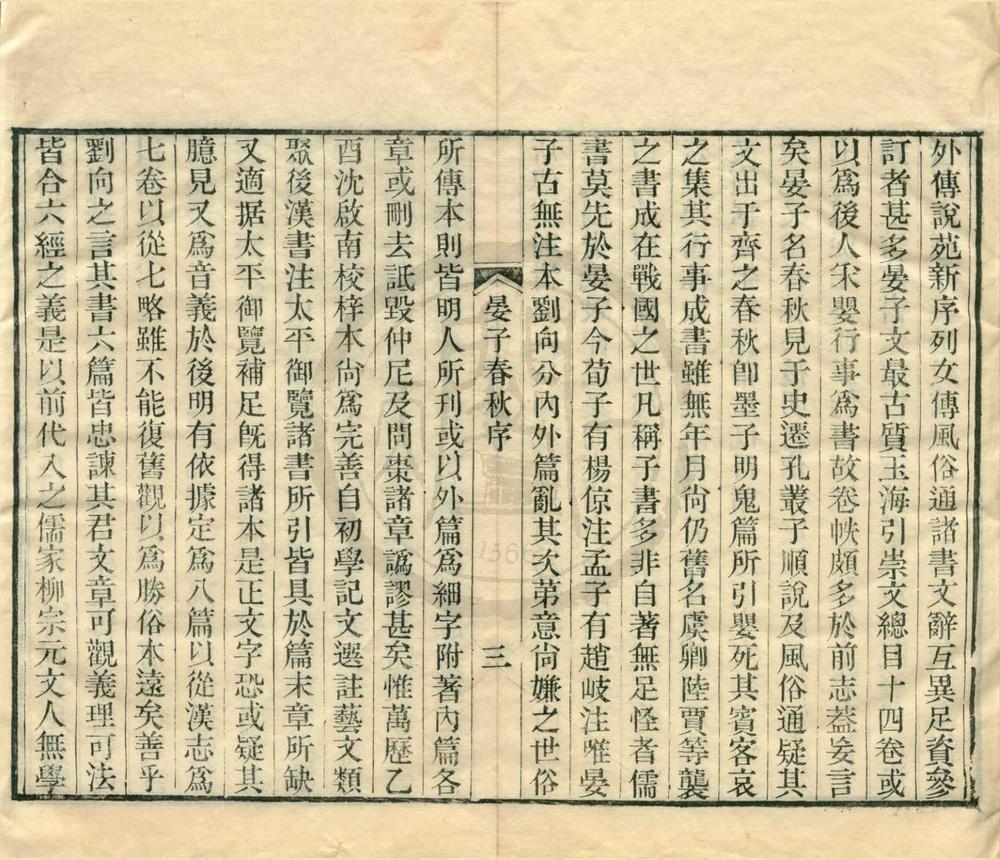 外傳說苑新序列女傳風俗通諸書文辭互異足資參
訂者甚多晏子文最古質玉海引崇文總目十四卷或
以爲後人采嬰行事爲書故卷帙頗多於前志葢妄言
矣晏子名春秋見于史遷孔叢子順說及風俗通疑其
文出于齊之春秋卽墨子明鬼篇所引嬰死其賓客哀
之集其行事成書雖無年月尙仍舊名虞卿陸賈等襲
之書成在戰國之世凡稱子書多非自著無足怪者儒
書莫先於晏子今荀子有楊倞注孟子有趙岐注唯晏
子古無注本劉向分內外篇亂其次第意尙嫌之世俗
晏子春秋序
三
所傳本則皆明人所刊或以外篇爲細字附著內篇各
章或刪去詆毀仲尼及問棗諸章譌謬甚矣惟萬歷乙
酉沈啟南校梓本尙爲完善自初學記文選註藝文類
聚後漢書注太平御覽諸書所引皆具於篇末章所缺
又適据太平御覽補足旣得諸本是正文字恐或疑其
臆見又爲音義於後明有依據定爲八篇以從漢志爲
七卷以從七略雖不能復舊觀以爲勝俗本遠矣善乎
劉向之言其書六篇皆忠諫其君文章可觀義理可法
皆合六經之義是以前代入之儒家柳宗元文人無學
1366